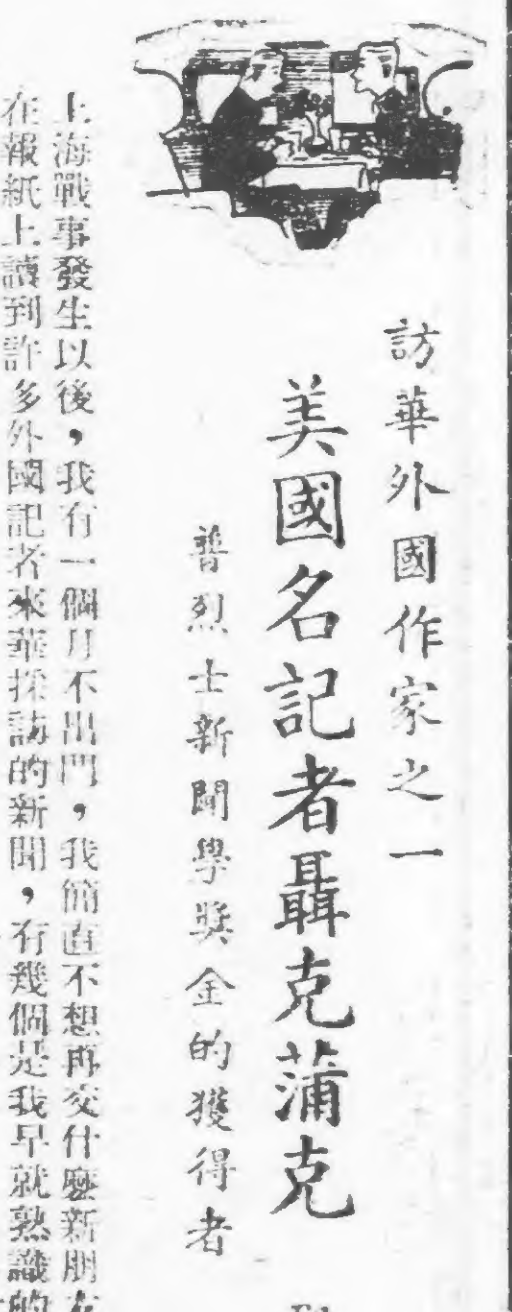 訪華外國作家之一
美國名記者聶克蒲克
普烈士新聞學獎金的獲得者
上海戰事發生以後，我有一個月不出門，我簡直不想再交什麼新朋友
在報紙上讀到許多外國記者來華採訪的新聞，有幾個是我早就熟識的